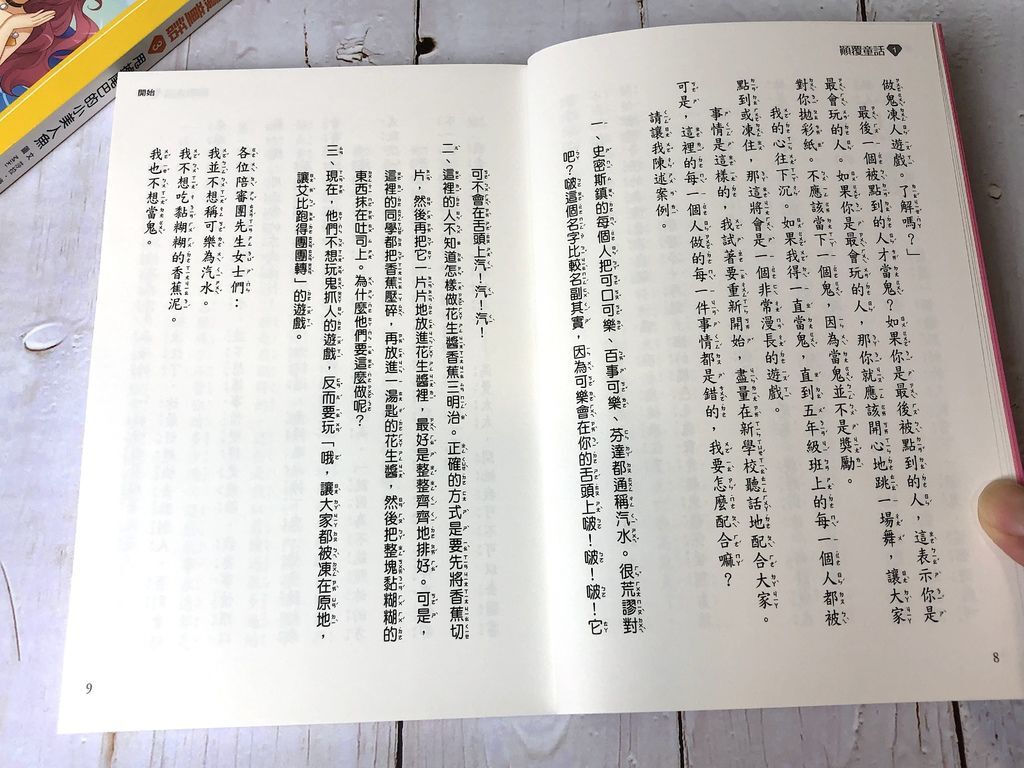 顛覆童話 1
做鬼凍人遊戲。了解嗎？」
最後一個被點到的人才當鬼？如果你是最後被點到的人，這表示你是
最會玩的人。如果你是最會玩的人，那你就應該開心地跳一場舞，讓大家
對你拋彩紙。不應該當下一個鬼，因為當鬼並不是獎勵。
我的心往下沉。如果我得一直當鬼，直到五年級班上的每一個人都被
點到或凍住，那這將會是一個非常漫長的遊戲。
事情是這樣的，我試著要重新開始，盡量在新學校聽話地配合大家。
可是，這裡的每一個人做的每一件事情都是錯的，我要怎麼配合嘛？
請讓我陳述案例。
一、史密斯鎮的每個人把可口可樂、百事可樂、芬達都通稱汽水。很荒謬對
吧？啵這個名字比較名副其實，因為可樂會在你的舌頭上啵！啵！啵！它
8
開始
可不會在舌頭上汽！汽！汽！
二、這裡的人不知道怎樣做花生醬香蕉三明治。正確的方式是要先將香蕉切
片，然後再把它一片片地放進花生醬裡，最好是整整齊齊地排好。可是，
這裡的同學都把香蕉壓碎，再放進一湯匙的花生醬，然後把整塊黏糊糊的
東西抹在吐司上。為什麼他們要這麼做呢？
三、現在，他們不想玩鬼抓人的遊戲，反而要玩「哦，讓大家都被凍在原地，
讓艾比跑得團團轉」的遊戲。
各位陪審團先生女士們：
我並不想稱可樂為汽水。
我不想吃黏糊糊的香蕉泥。
我也不想當鬼。
9
3
的小美人魚